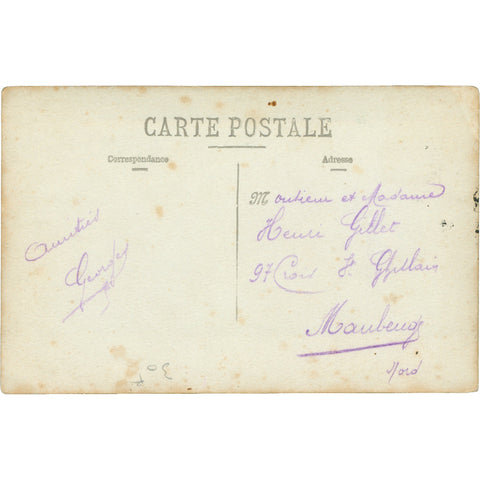 CARTE POSTALE
Correspondance
Adresse
Monsieur et Madame
Henri Gillet
97 Croix St Ghillain
Maubeuge
Nord
Amitiés
Georges